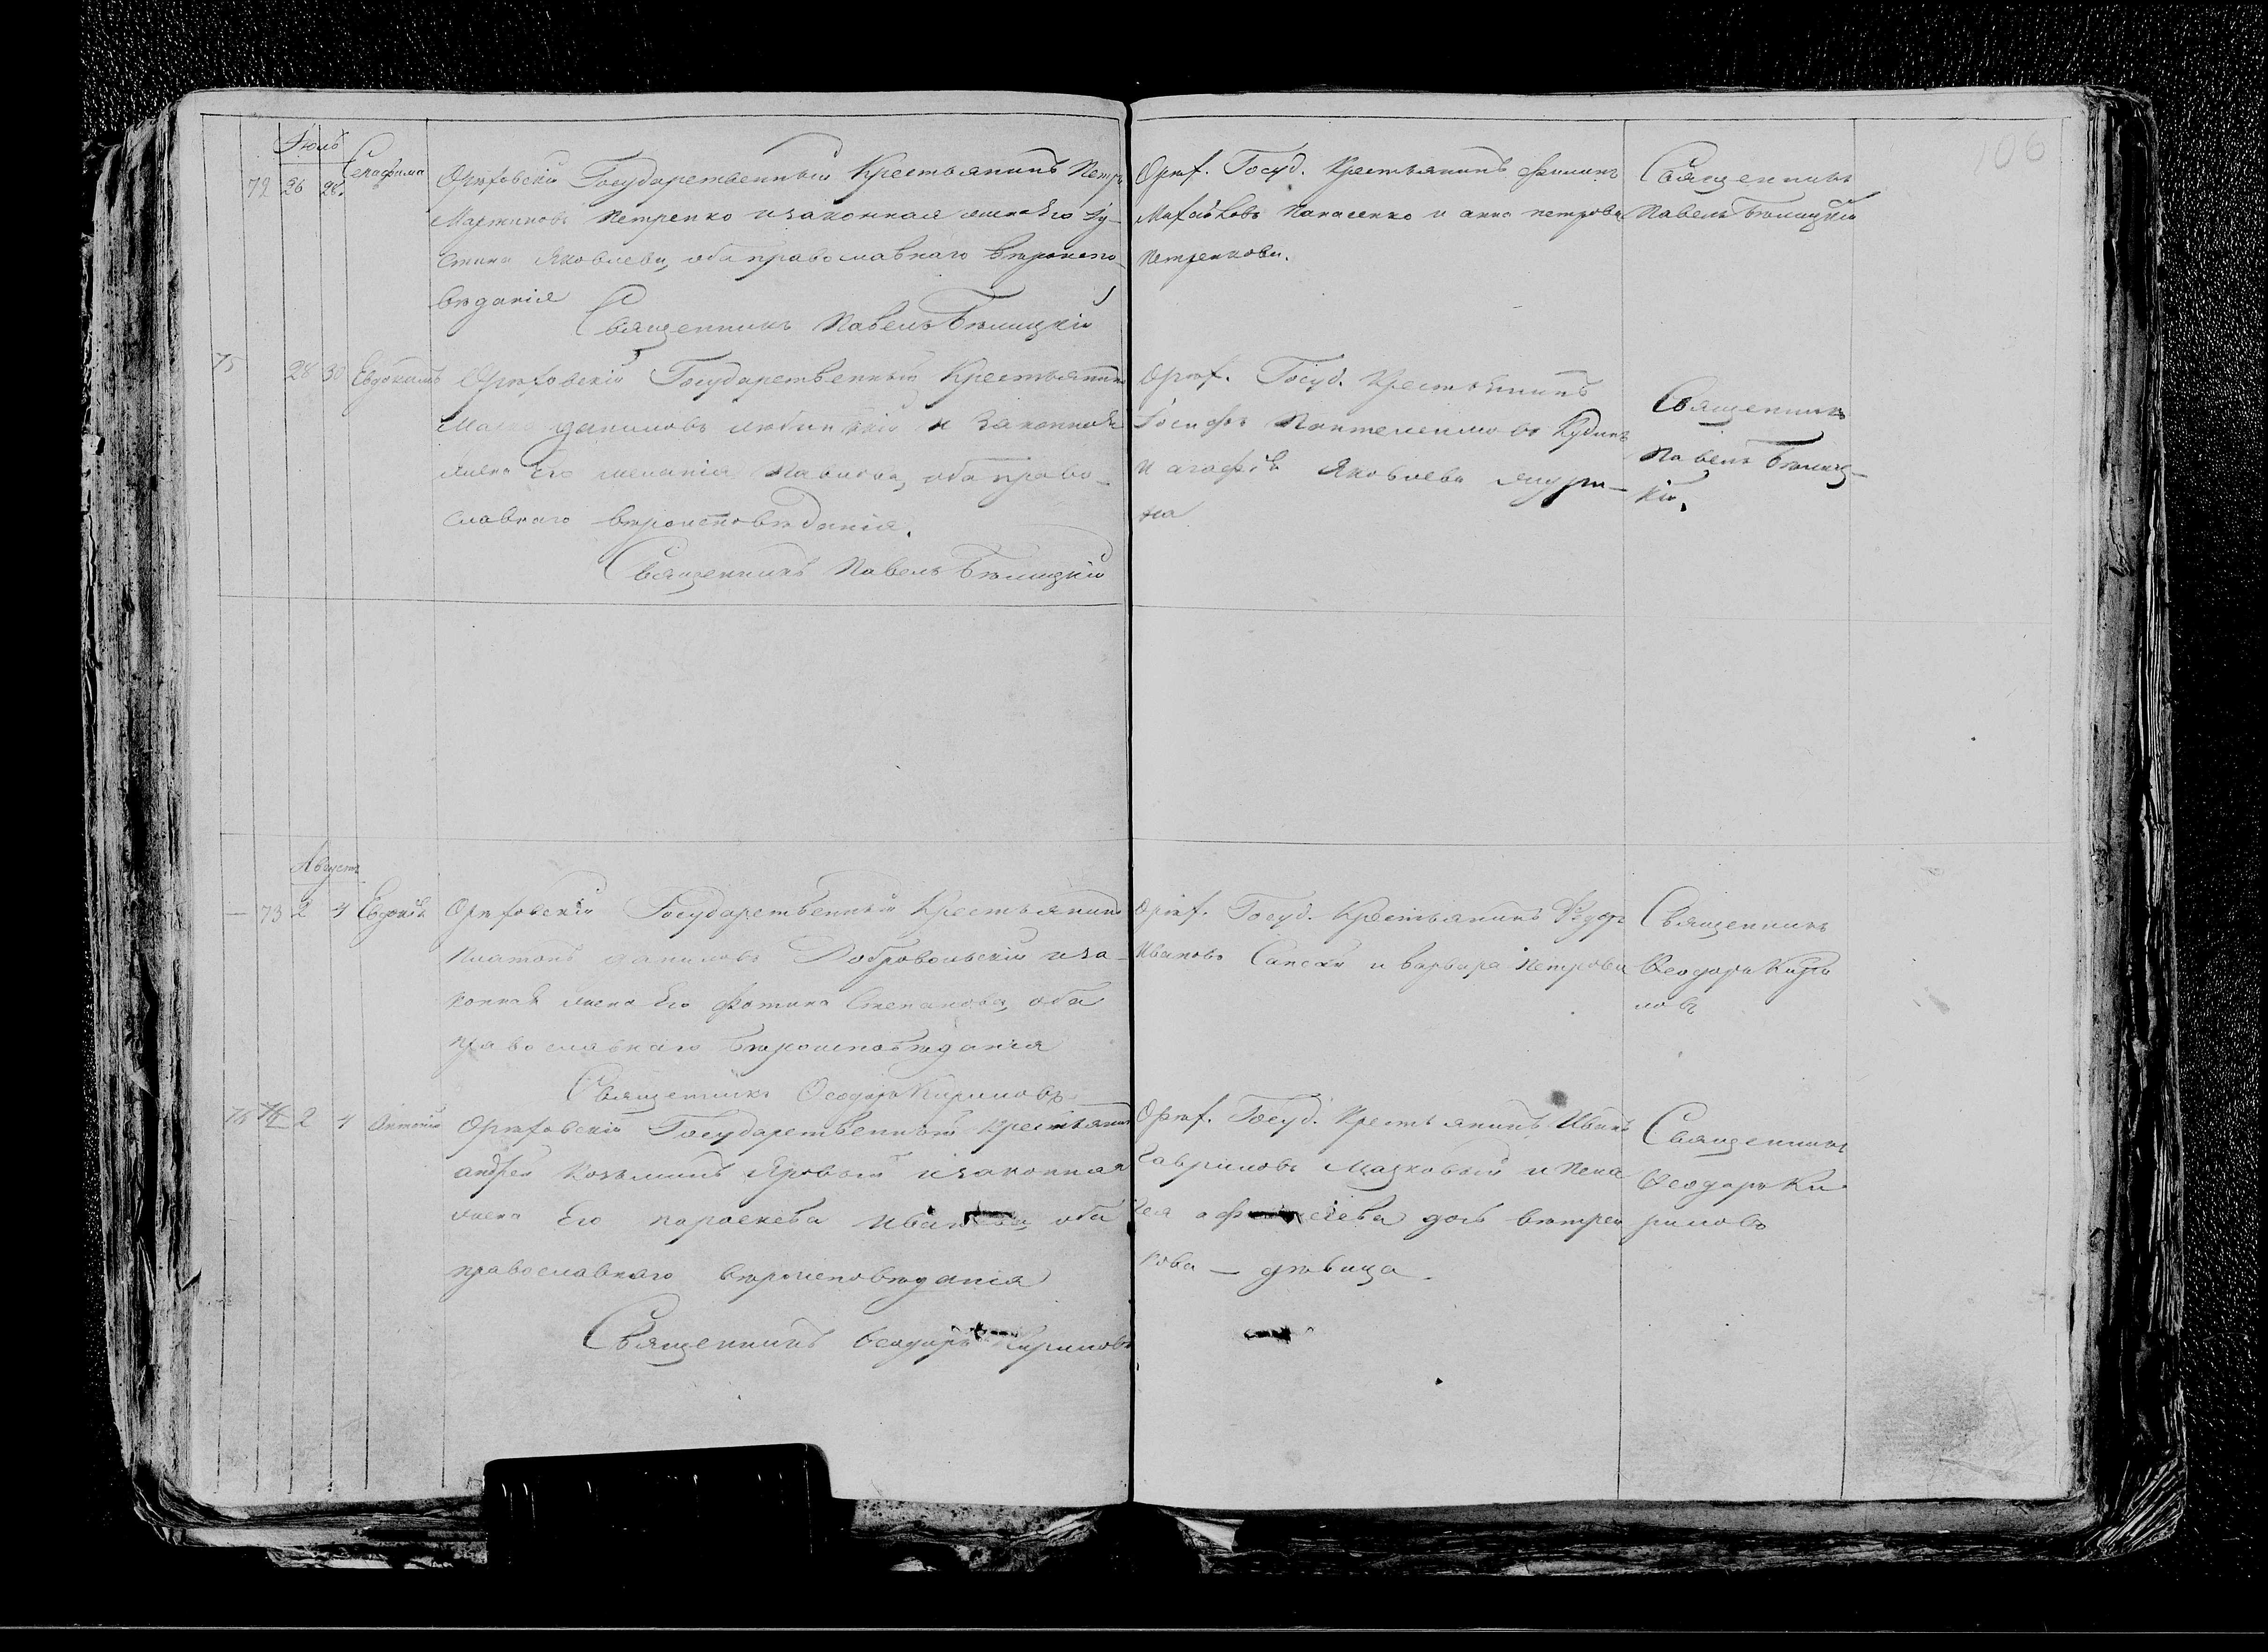 106
Іюль
72 26 28. Серафима
Орѣховскій Государственный Крестьянинъ Петръ
Мартиновъ Петренко и законная жена Его Іу-
стина Яковлева, оба православнаго вѣроиспо-
вѣданія
Священникъ Павелъ Бѣлицкій
Орѣх. Госуд. Крестьянинъ Филипъ
Михайловъ Панасенко и Анна Петрова
Петренкова.
Священникъ
Павелъ Бѣлицкій
75 28 30 Евдокимъ
Орѣховскій Государственный Крестьянинъ
Даниловъ и Законная
жена Его Меланія Павлова, оба право-
славнаго вѣроисповѣданія.
Священникъ Павелъ Бѣлицкій
Орѣх. Госуд. Крестьянинъ
Іосифъ Пантелеимоновъ
и Агафія Яковлева
на
Священникъ
Павелъ Бѣлиц-
кій.
Августъ
73 2 4 Евдокія
Орѣховскій Государственный Крестьянинъ
Платонъ Даниловъ Добровольскій и за-
конная жена Его Фотина Степанова, оба
православнаго вѣроисповѣданія
Священникъ Ѳеодоръ Кириловъ
Орѣх. Госуд. Крестьянинъ Ѳедоръ
Ивановъ и Варвара Петрова
Священникъ
Ѳеодоръ Кири
ловъ
76 2 4 Антоній
Орѣховскій Государственный Крестьянинъ
Андрей Козьминъ Яровый и законная
жена Его Параскева Иванова, оба
православнаго вѣроисповѣданія
Священникъ Ѳеодоръ Кириловъ
Орѣх. Госуд. Крестьянинъ Иванъ
Гавриловъ Мазковый и Пела
гея дочь Вѣтрен
кова — дѣвица.
Священникъ
Ѳеодоръ Ки
риловъ